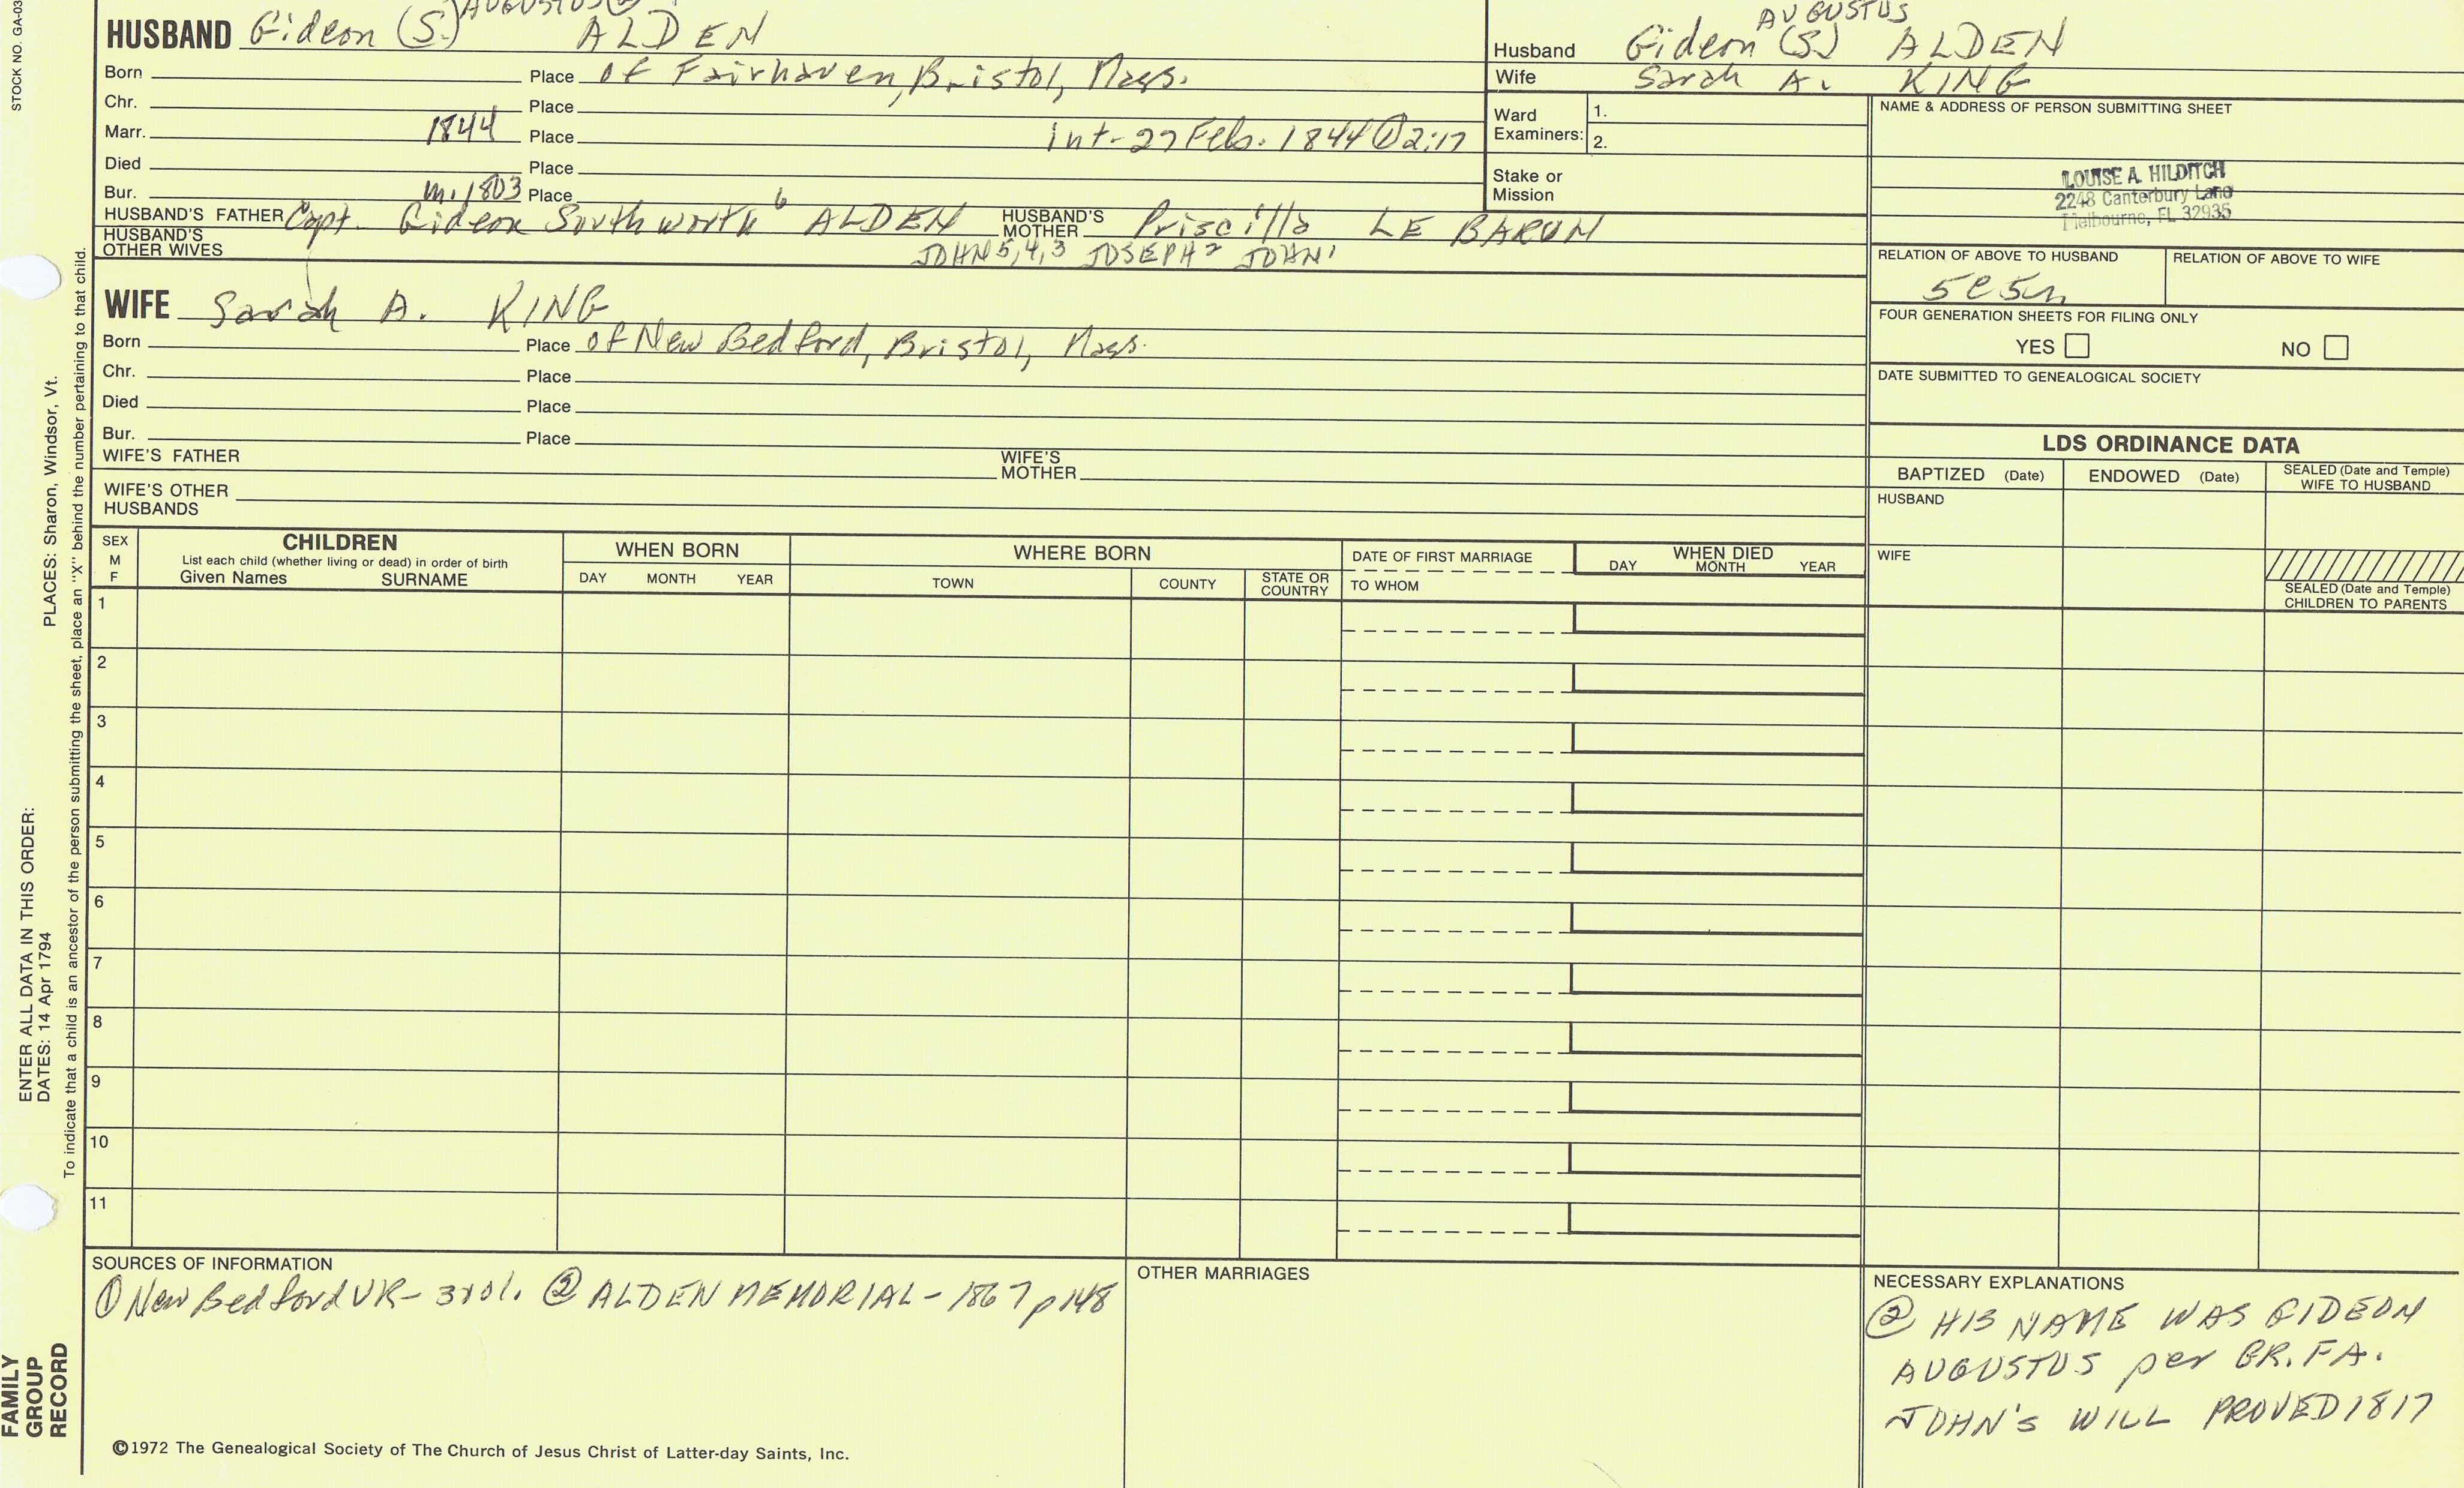 STOCK NO. GA-03
AUGUSTUS ②
HUSBAND Gideon (S.) ALDEN
Born Place of Fairhaven, Bristol, Mass.
Chr. Place
Marr. 1844 Place int-27 Feb. 1844 ① 2:17
Died Place
Bur. m. 1803 Place
HUSBAND'S FATHER Capt. Gideon Southworth 6 ALDEN HUSBAND'S MOTHER Priscilla LE BARON
HUSBAND'S OTHER WIVES JOHN 5,4,3 JOSEPH 2 JOHN 1
WIFE Sarah A. KING
Born Place of New Bedford, Bristol, Mass.
Chr. Place
Died Place
Bur. Place
WIFE'S FATHER WIFE'S MOTHER
WIFE'S OTHER HUSBANDS
AUGUSTUS
Husband Gideon ^ (S) ALDEN
Wife Sarah A. KING
Ward Examiners: 1.
2.
Stake or Mission
NAME & ADDRESS OF PERSON SUBMITTING SHEET
LOUISE A. HILDITCH
2248 Canterbury Lane
Melbourne, FL 32935
RELATION OF ABOVE TO HUSBAND RELATION OF ABOVE TO WIFE
FOUR GENERATION SHEETS FOR FILING ONLY
YES NO
DATE SUBMITTED TO GENEALOGICAL SOCIETY
LDS ORDINANCE DATA
BAPTIZED (Date) ENDOWED (Date) SEALED (Date and Temple) WIFE TO HUSBAND
HUSBAND
WIFE
SEALED (Date and Temple) CHILDREN TO PARENTS
SEX M F
CHILDREN
List each child (whether living or dead) in order of birth
Given Names SURNAME
WHEN BORN
DAY MONTH YEAR
WHERE BORN
TOWN COUNTY STATE OR COUNTRY
DATE OF FIRST MARRIAGE
TO WHOM
WHEN DIED
DAY MONTH YEAR
1
2
3
4
5
6
7
8
9
10
11
SOURCES OF INFORMATION
① New Bedford VR- 3 vol. ② ALDEN MEMORIAL - 1867 p 148
OTHER MARRIAGES
NECESSARY EXPLANATIONS
② HIS NAME WAS GIDEON
AUGUSTUS per GR. FA.
JOHN'S WILL PROVED 1817
©1972 The Genealogical Society of The Church of Jesus Christ of Latter-day Saints, Inc.
FAMILY
GROUP
RECORD
ENTER ALL DATA IN THIS ORDER:
DATES: 14 Apr 1794 PLACES: Sharon, Windsor, Vt.
To indicate that a child is an ancestor of the person submitting the sheet, place an "X" behind the number pertaining to that child.